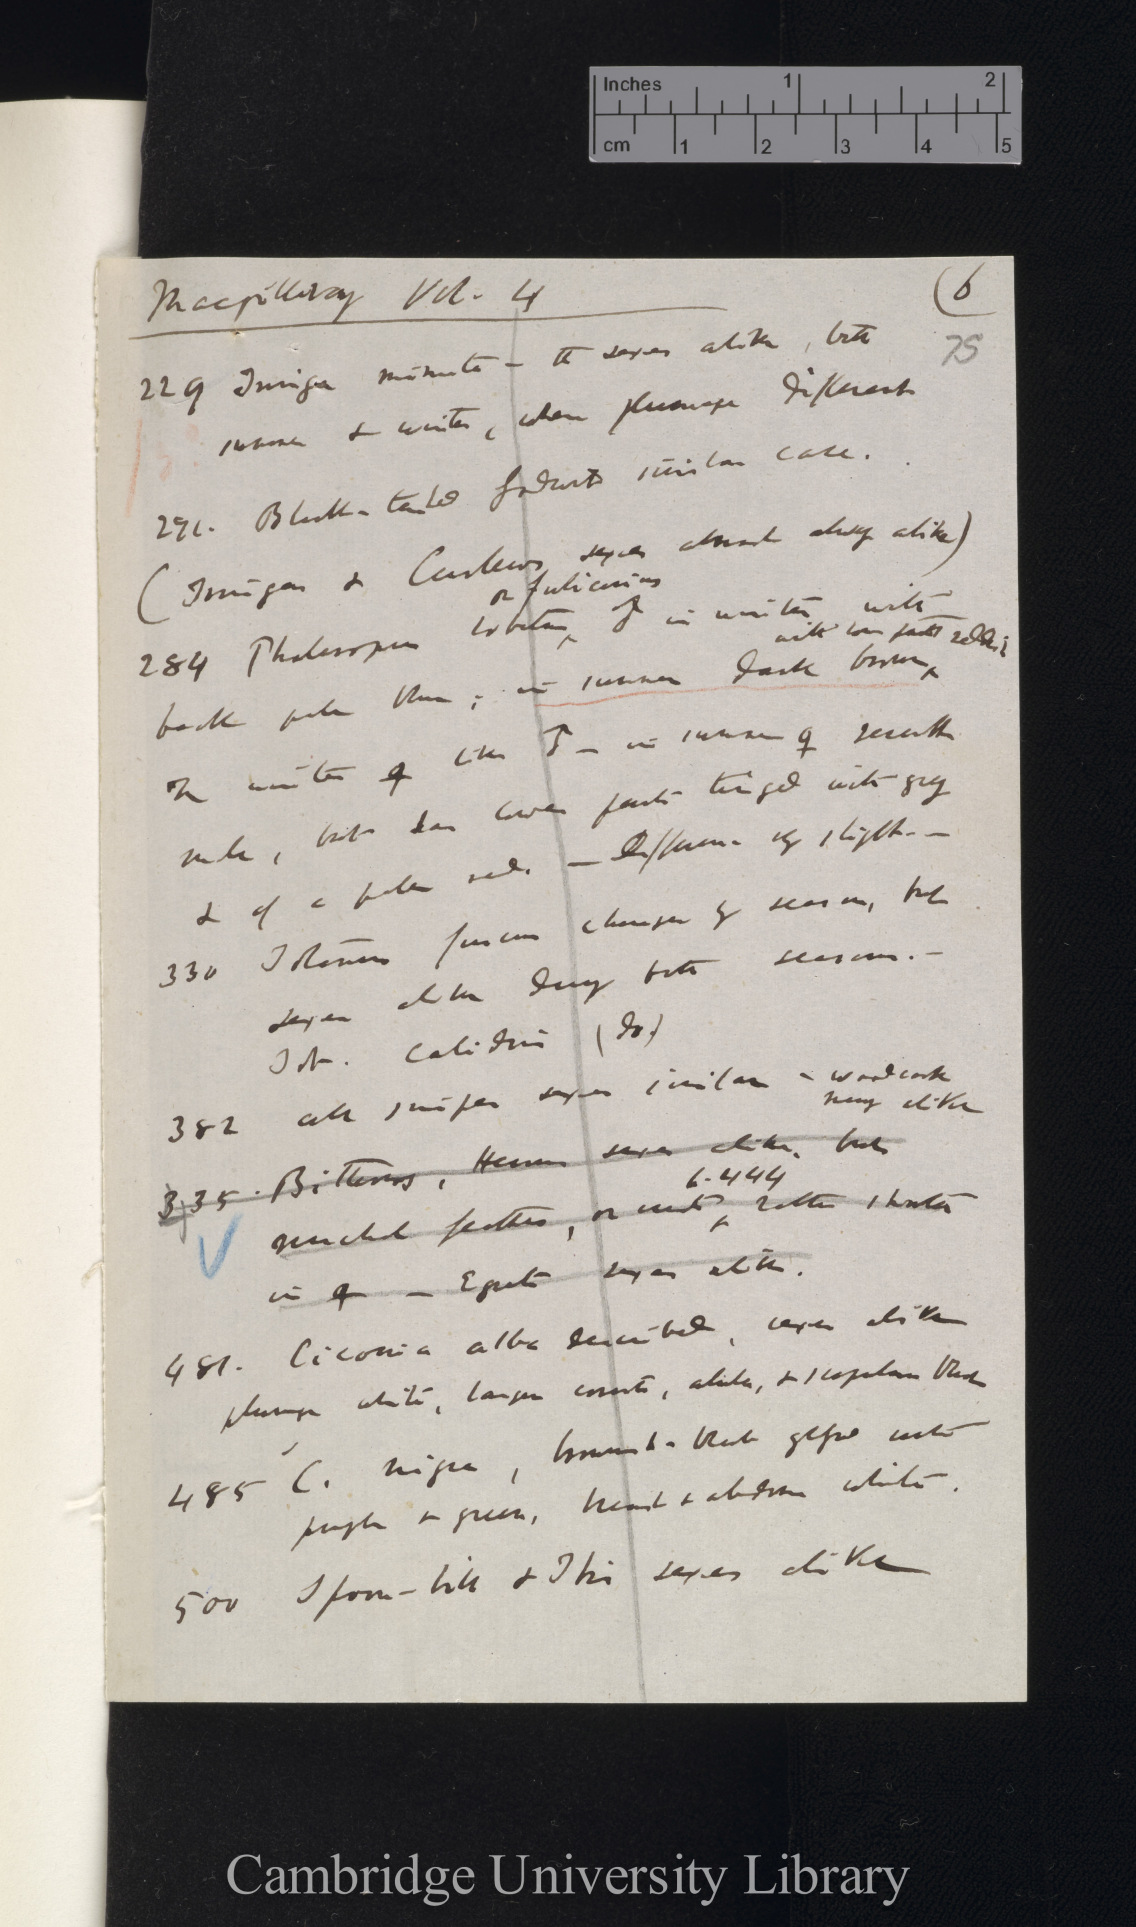 Inches 1 2
cm 1 2 3 4 5
Macgillivray Vol. 4
(6
75
229 Tringa minuta – the sexes alike, both
summer & winter, when plumage different
291. Black-tailed Godwits similar case.
(Tringas & Curlews sexes almost always alike)
or fulicarius
284 Phalaropus lobatus ^ ♂ in winter with
with low parts reddish
back pale blue; in summer dark brown ^
In winter ♀ like ♂ – in summer ♀ resembles
male, but has lower parts tinged with grey
& of a paler red. – difference very slight. –
330 Totanus fuscus changes by season, but
sexes alike during both seasons. –
Tot. Calidris (do)
382 all snipes sexes similar – woodcock
very alike
435. Bitterns, Herons sexes alike, but
6. 444
nuchal feathers, or crest ^ rather shorter
in ♀ – Egrets sexes alike.
481. Ciconia alba described, sexes alike
plumage white, larger coverts, alula, & scapulars black
485 C. nigra, brownish-black glossed with
purple & green, breast & abdomen white.
500 Spoon-bill & Ibis sexes alike
Cambridge University Library